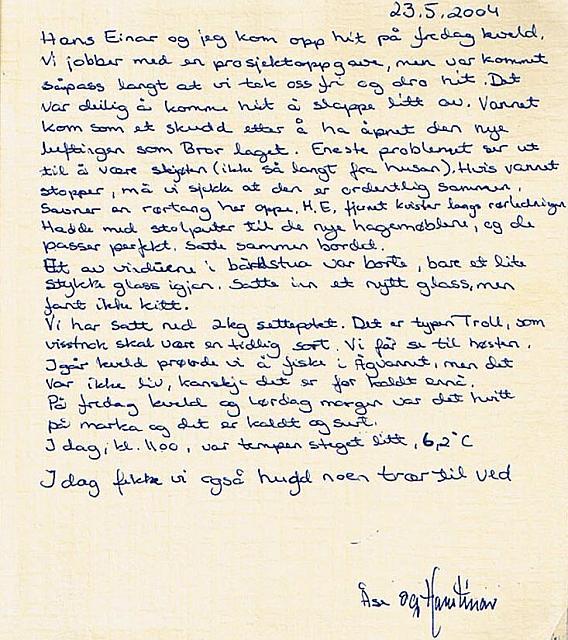 23.5.2004
Hans Einar og jeg kom opp hit på fredag kveld.
Vi jobber med en prosjektoppgave, men var kommet
såpass langt at vi tok oss fri og dro hit. Det
var deilig å komme hit å slappe litt av. Vannet
kom som et skudd etter å ha åpnet den nye
luftingen som Bror laget. Eneste problemet ser ut
til å være skjøten (ikke så langt fra husan). Hvis vannet
stopper, må vi sjekke at den er ordentlig sammen.
Savner en rørtang her oppe. H.E. fjernet kvister langs rørledningen
Hadde med stolputer til de nye hagemøblene, og de
passer perfekt. Satte sammen bordet.
Et av vinduene i bårdstua var borte, bare et lite
stykke glass igjen. Satte inn et nytt glass, men
fant ikke kitt.
Vi har satt ned 2kg settepotet. Det er typen Troll, som
visstnok skal være en tidlig sort. Vi får se til høsten.
Igår kveld prøvde vi å fiske i Ågvannet, men det
var ikke liv, kanskje det er for kaldt ennå.
På fredag kveld og lørdag morgen var det hvitt
på marka og det er kaldt og surt.
I dag, kl. 1100, var tempen steget litt, 6,2°C
I dag fikk vi også hugd noen trær til ved
Åse og Hans Einar